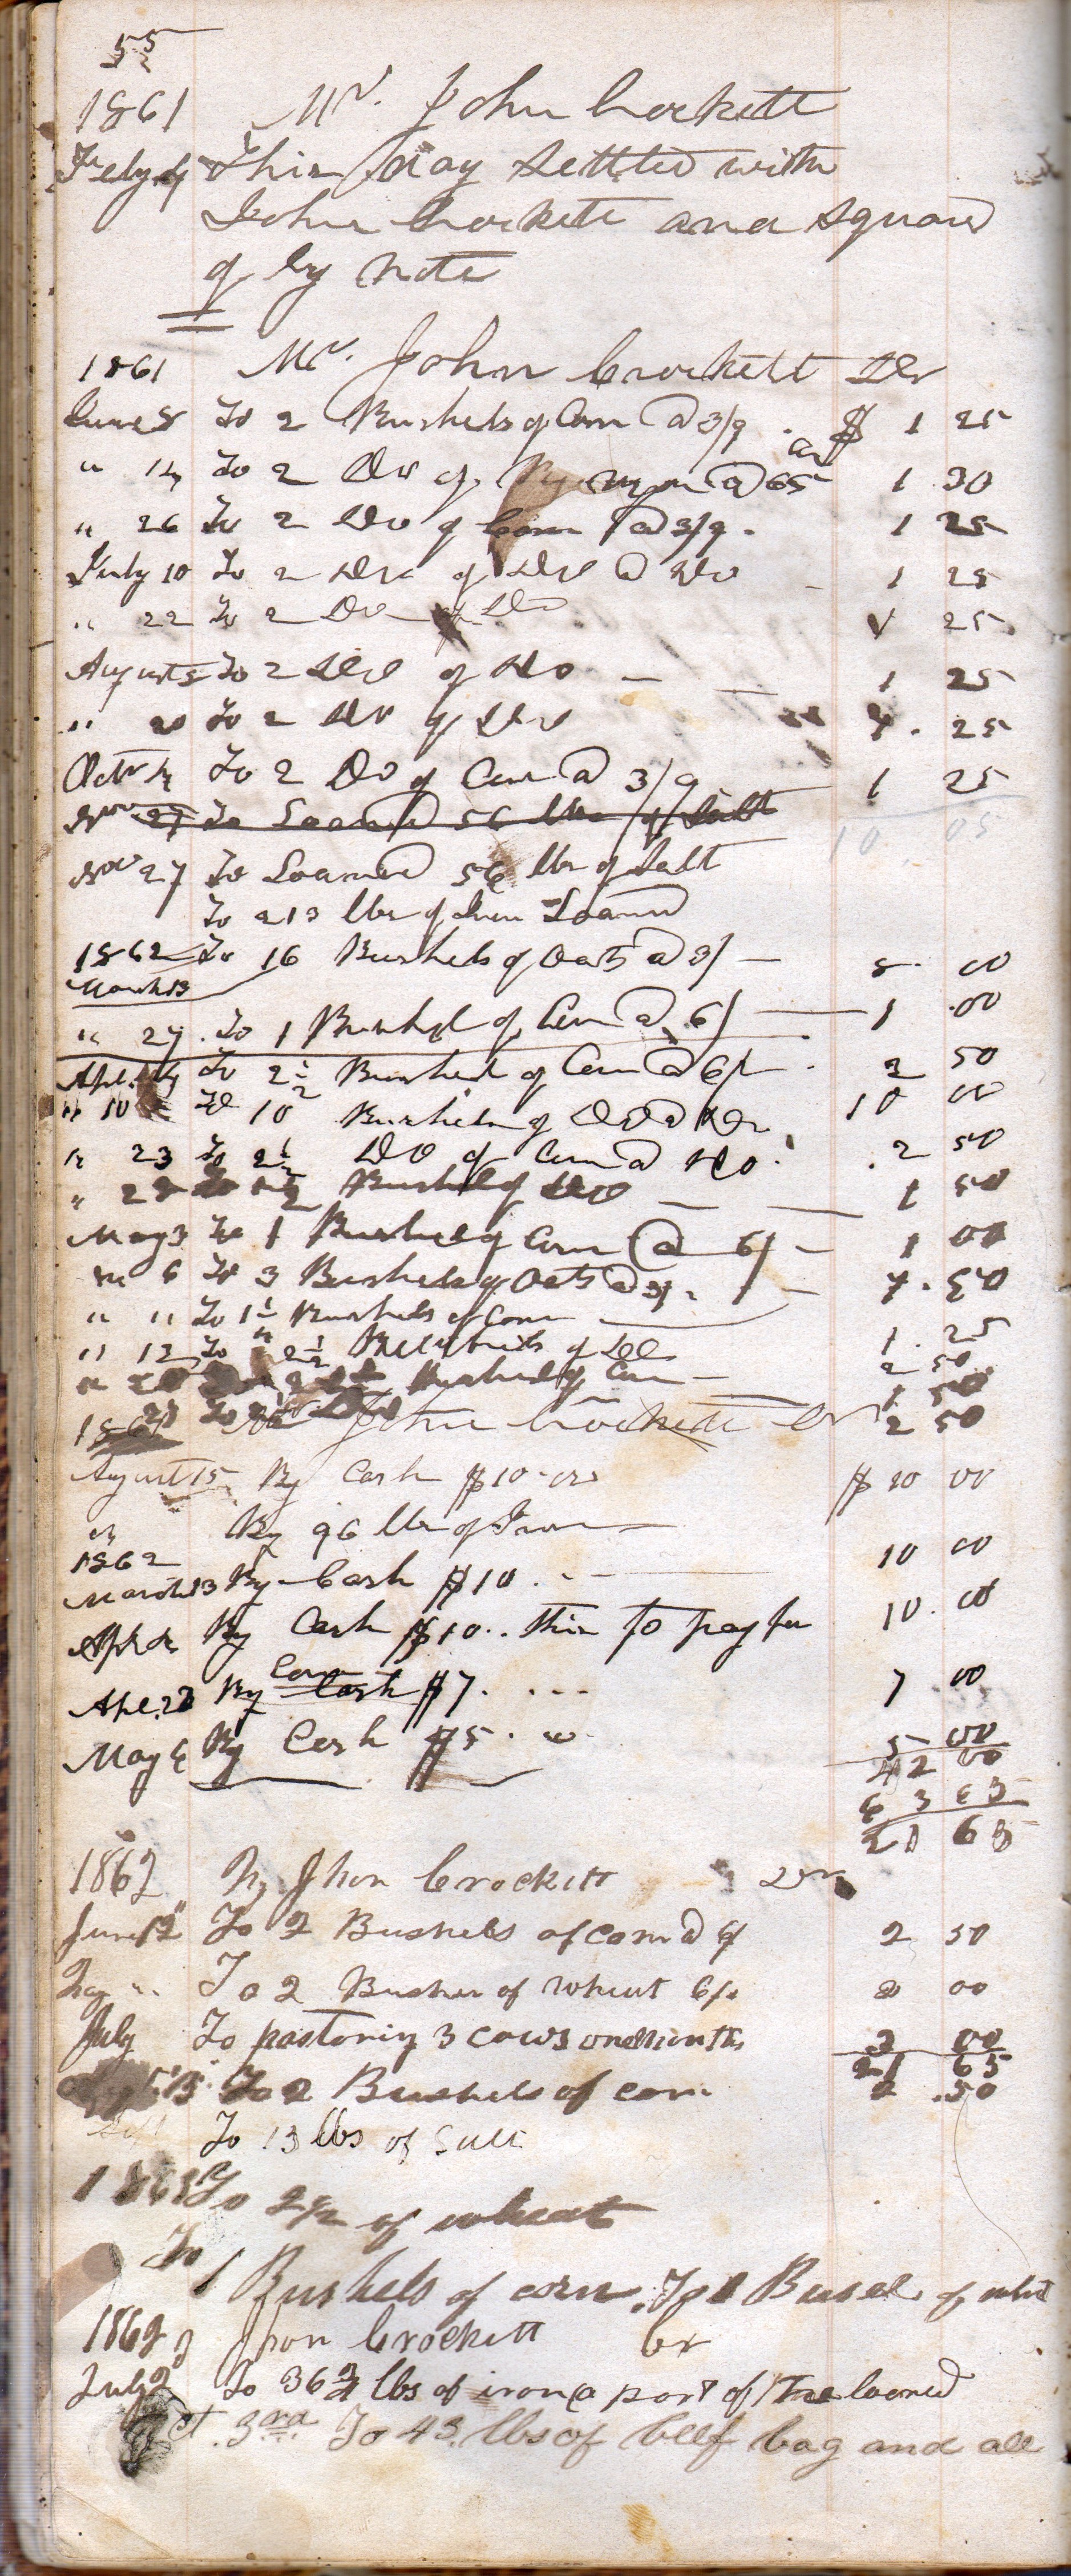 55
1861 Mr. John Crockett
Feby 4 This day settled with
John Crockett and squared
of by note
1861 Mr. John Crockett Dr
June 8 To 2 Bushels of Corn @ 3/9 $ 1 25
" 14 To 2 Do of @ 65 1 30
" 26 To 2 Do of Corn @ 3/9. 1 25
July 10 To 2 Do of Do @ Do 1 25
" 22 To 2 Do of Do 1 25
August 5 To 2 Do of Do — 1 25
" 20 To 2 Do of Do 1. 25
Octr 14 To 2 Do of Corn @ 3/9 1 25
Nov 27 To Loaned 56 lbs of Salt 10 05
Nov 27 To Loaned 56 lbs of Salt
To 213 lbs of Iron Loaned
1862 To 16 Bushels of Oats @ 3/ — 8. 00
March 13
" 27. To 1 Bushel of Corn @ 6/ — 1 .00
Apl. To 2 1/2 Bushel of Corn @ 6/ 2 50
" 10 To 10 Bushels of Do @ Do 10 00
" 23 To 2 1/2 Do of Corn @ Do. 2 50
" Bushel of Do — 1 50
May 3 To 1 Bushel of Corn @ 6/ — 1 00
" 6 To 3 Bushels of Oats @ 3/. — 1.50
" " To 1 1/4 Bushels of Corn 1. 25
" 12 To 2 1/2 Bushels of Do 2 50
" Bushel of Corn — 1 50
John Crockett Cr 2 50
August 15 By Cash $10.00 $ 10 00
" By 96 lbs of Iron —
1862 10 00
March 13 By Cash $10. —
Apl By Cash $10.. this to pay for 10. 00
Corn
Apl. 23 By Cash $7. ... 7 00
May 6 By Cash $5. 00 5 00
42 00
63 65
21 65
1862 Jhon Crockett Dr
June 12 To 2 Bushels of corn @ 2 50
" To 2 Busher of wheat 6/ 2 00
July To pastoring 3 cows one month 3 00
21 65
15 To 2 Bushels of corn 2 .50
To 13 lbs of Salt
1863 To 2 1/2 of wheat
To 1 Bushels of corn. To 1 Busel of
1862 Jhon Crockett Cr
July 2 To 36 3/4 lbs of iron a part of the loaned
Oct. 3rd To 43 lbs of beef bag and all